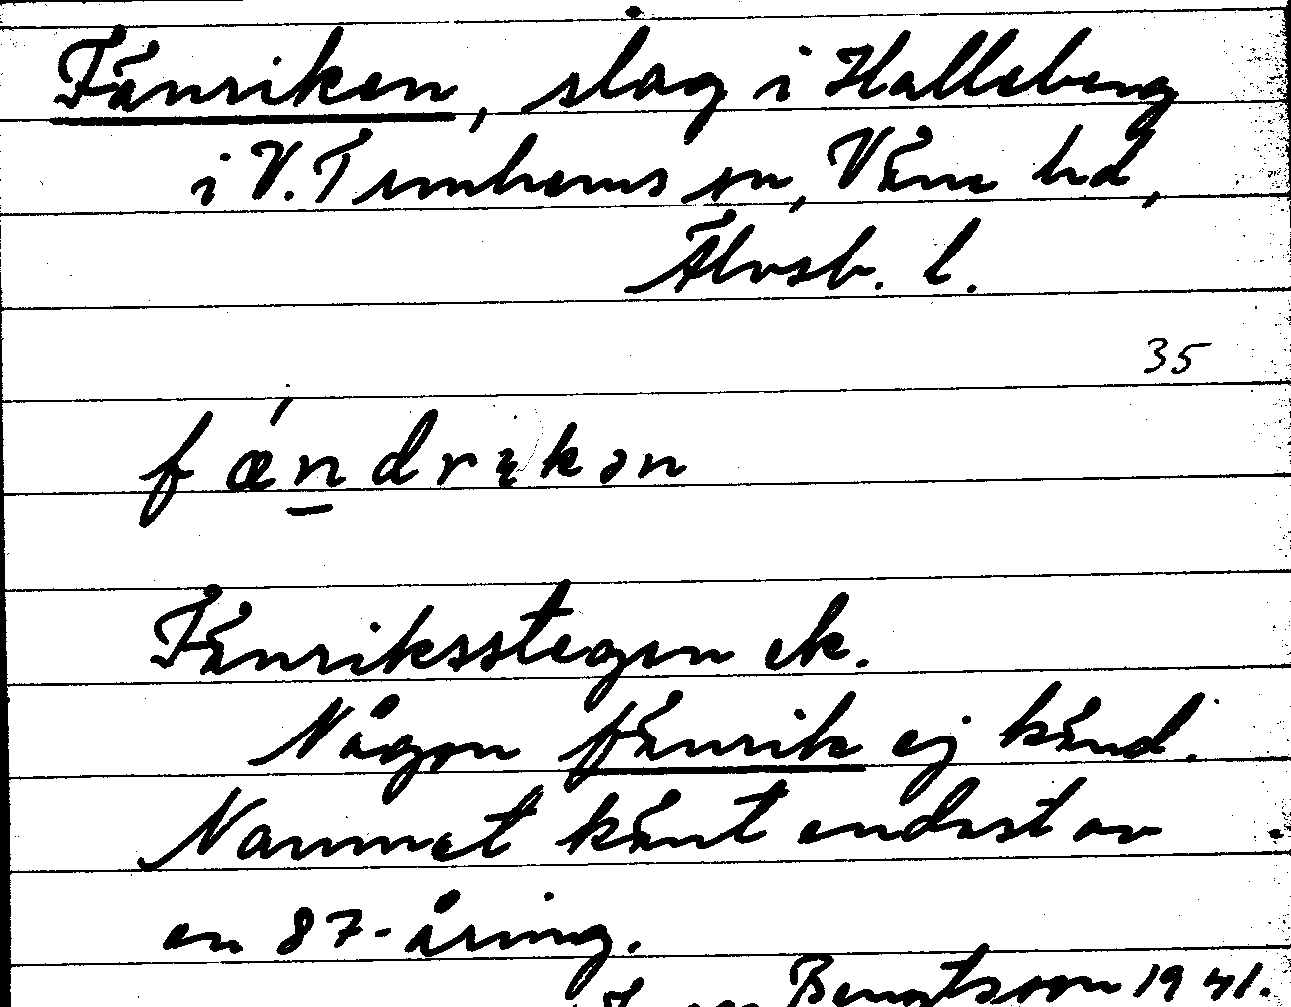 Fänriken, slag i Halleberg
i V. Tunhems sn, Väne hd,
Älvsb. l.
35
fǽndrikən
Fänriksstegen ek.
Någon fänrik ej känd.
Namnet känt endast av
en 87-åring.
Bengtsson 1941.